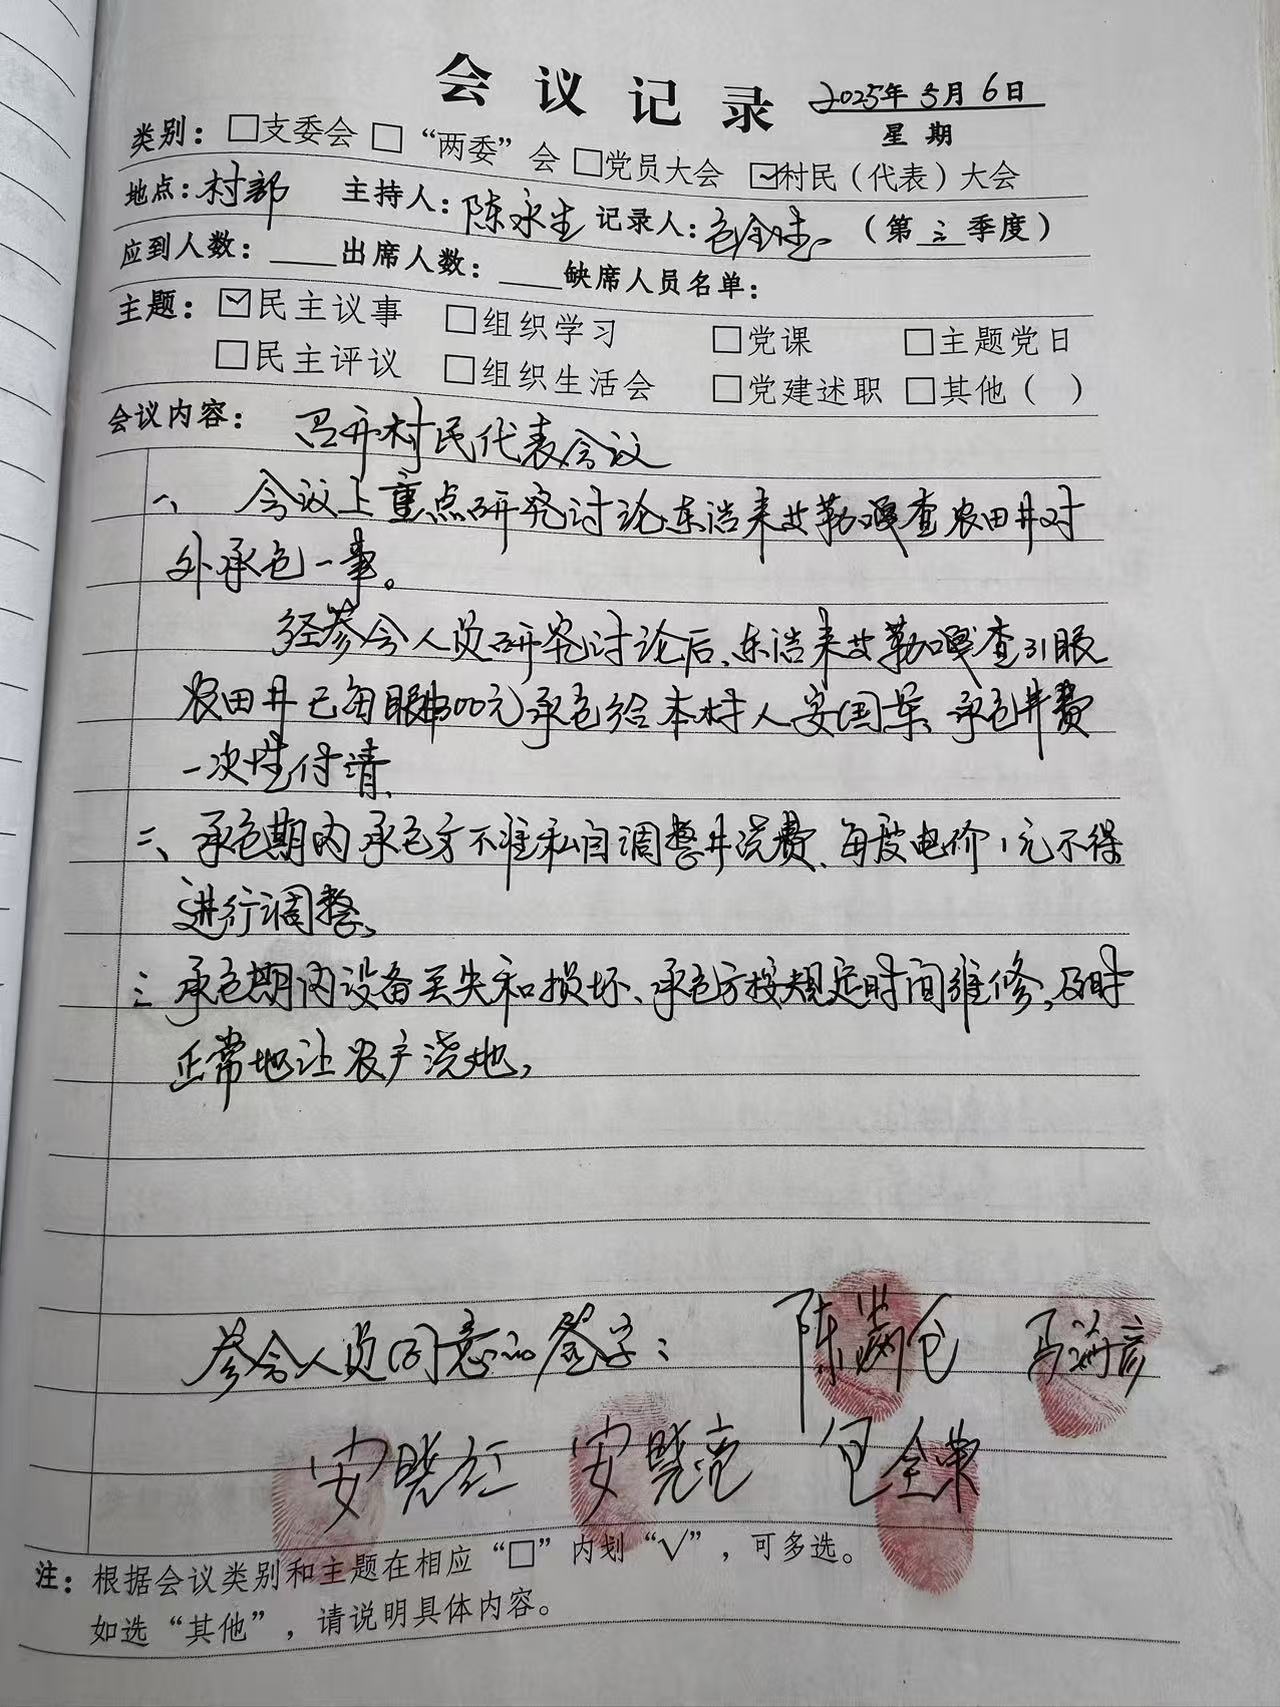 会议记录 2025年3月6日
星期
类别：□支委会 □“两委”会 □党员大会 ☑村民（代表）大会
地点：村部 主持人：陈永生 记录人：包金 （第三季度）
应到人数：____出席人数：____缺席人员名单：
主题：☑民主议事 □组织学习 □党课 □主题党日
□民主评议 □组织生活会 □党建述职 □其他（ ）
会议内容：召开村民代表会议
一、会议上重点研究讨论东浩来艾勒嘎查农田井对
外承包一事。
经参会人员研究讨论后、东浩来艾勒嘎查31眼
农田井已每眼井300元承包给本村人安国荣、承包井费
一次性付清、
二、承包期内承包方不准私自调整井浇费、每度电价1元不得
进行调整、
三 承包期内设备丢失和损坏、承包方按规定时间维修，及时
正常地让农户浇地，
参会人员同意的签字： 陈满仓 马海彦
安晓红 安晓亮 包金荣
注：根据会议类别和主题在相应“□”内划“√”，可多选。
如选“其他”，请说明具体内容。